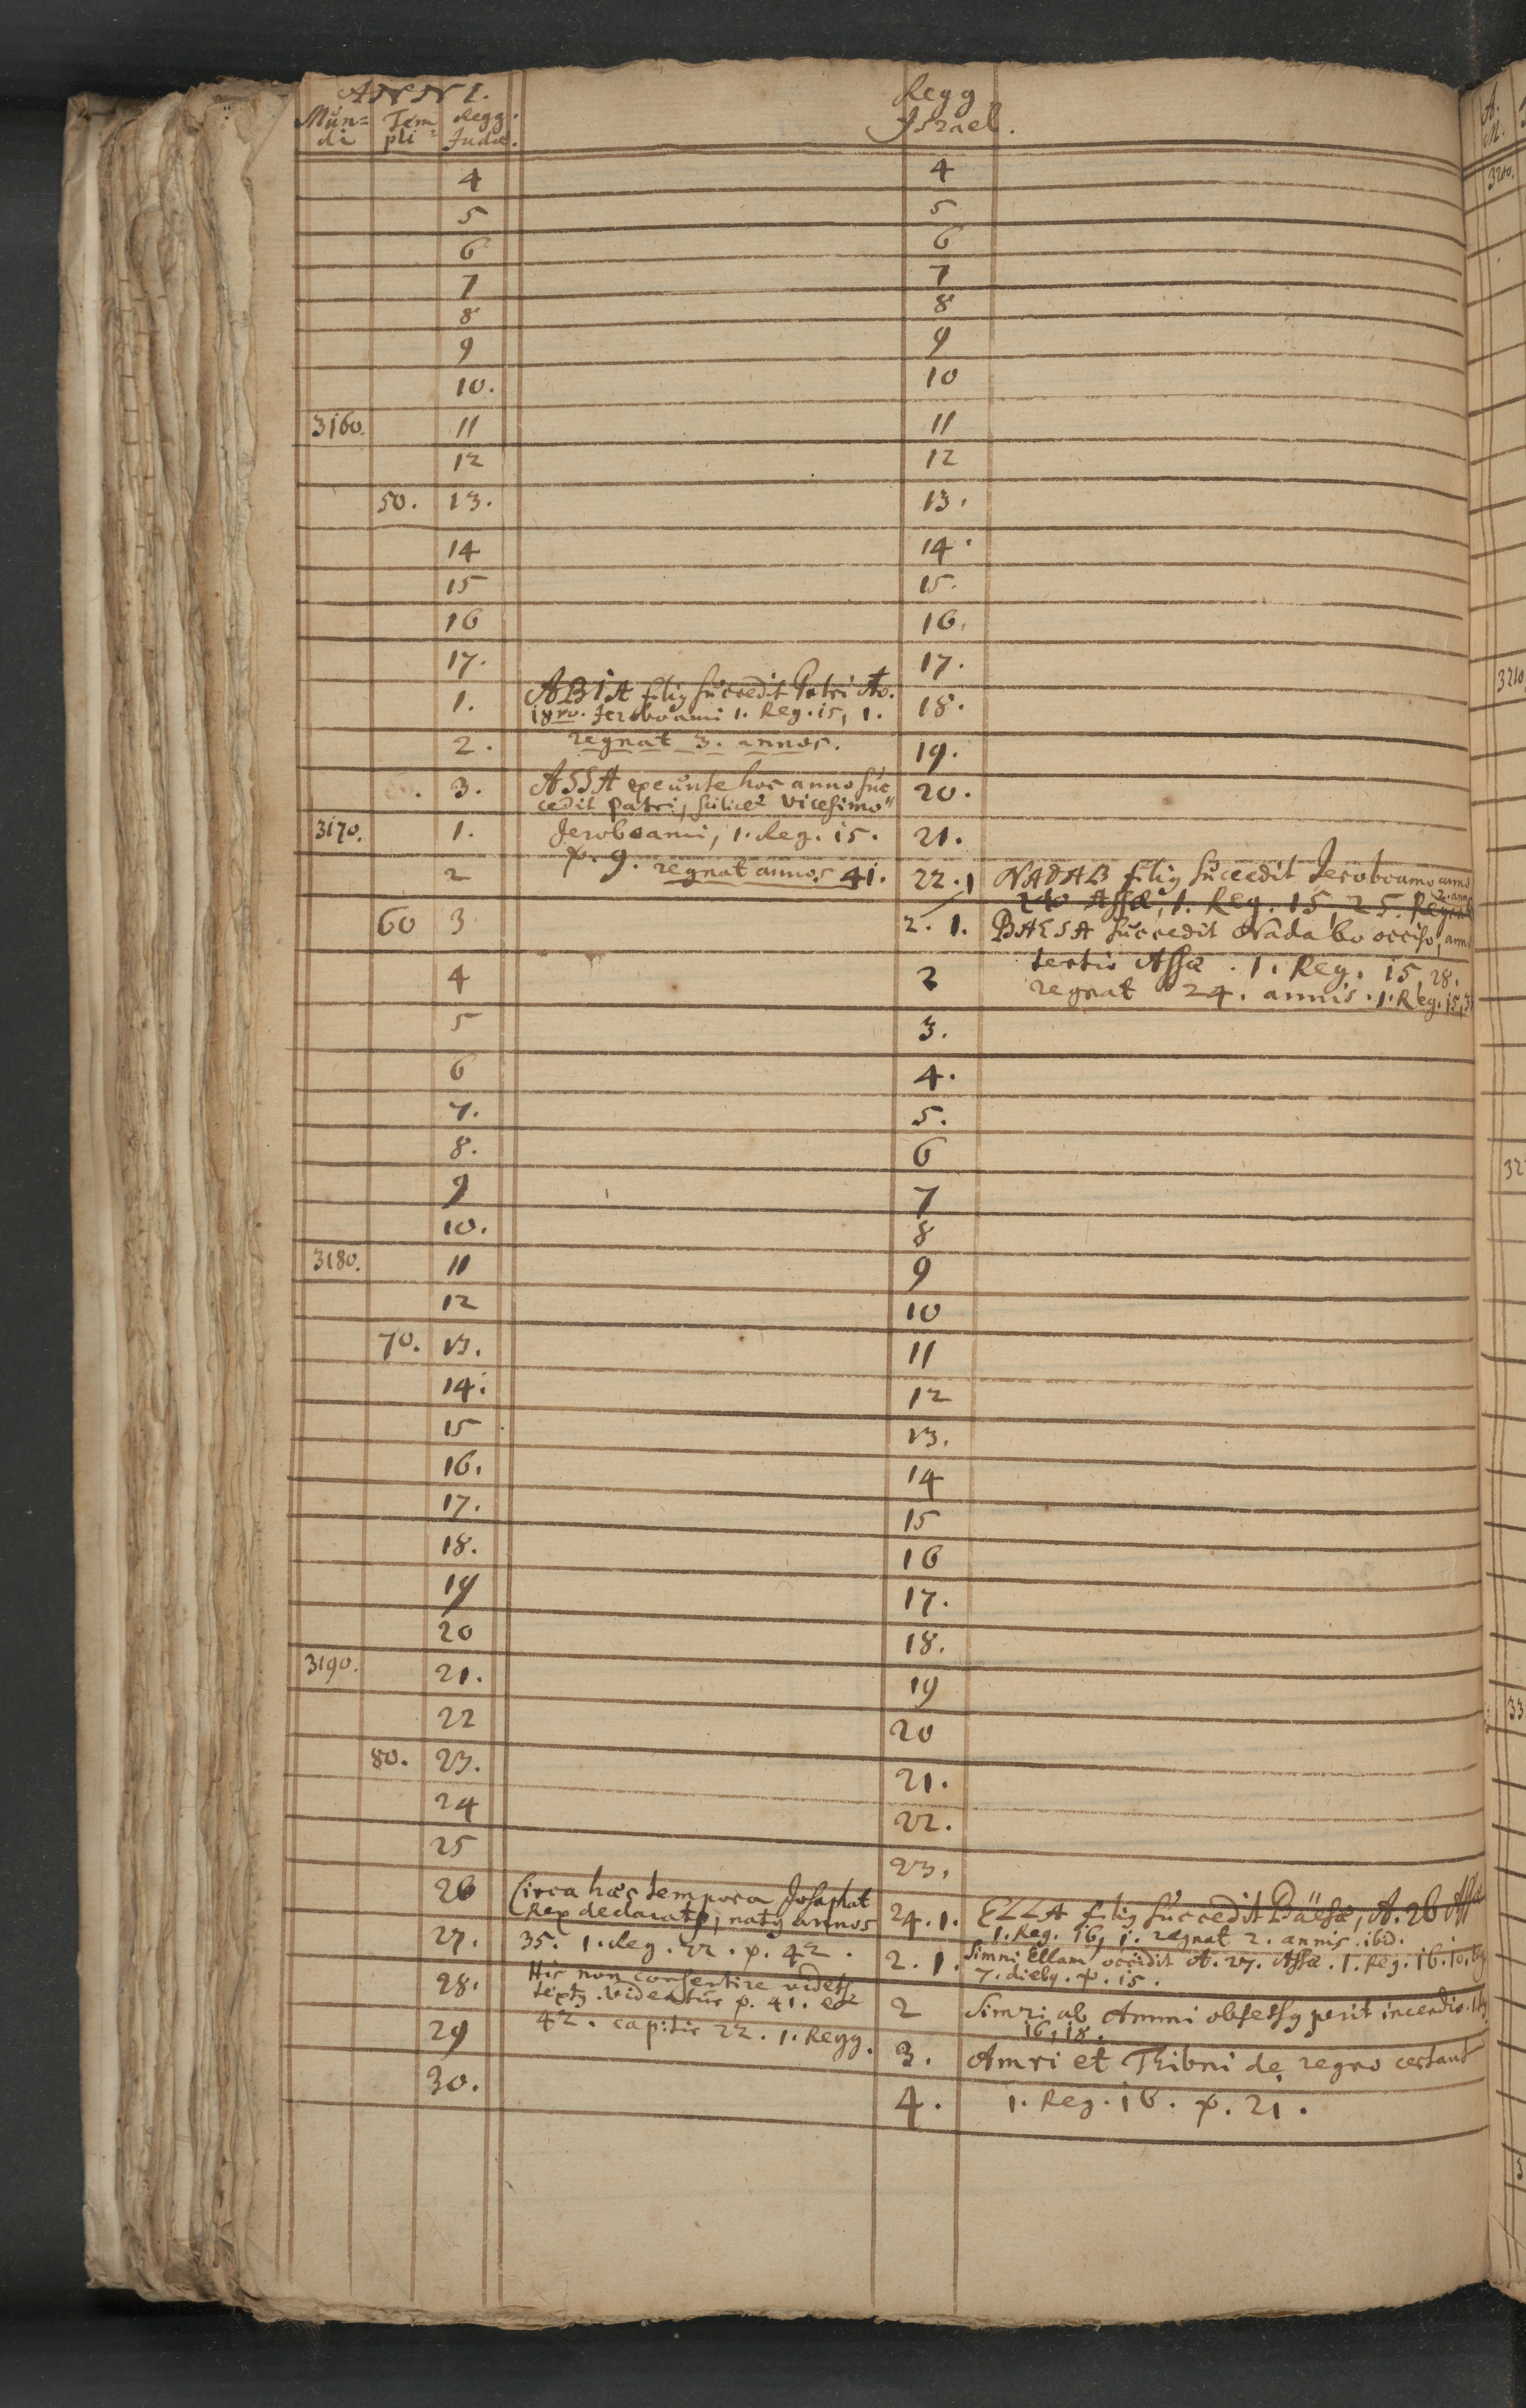 ANNI. Regg
Mun= Tem Regg. Israel.
di pli Judæ.
4 4
5 5
6 6
7 7
8 8
9 9
10. 10
3160. 11 11
12 12
50. 13. 13.
14 14
15 15.
16 16.
17. 17.
ABIA filiꝰ succedit Patri Ao.
1. 18vo. Jeroboami 1. Reg. 15, 1. 18.
2. regnat 3. annos. 19.
3. ASSA exeunte hoc anno suc 20.
cedit patri, scilicet vicesimo
3170. 1. Jeroboami, 1. Reg. 15. 21.
2 v. 9. regnat annos 41. 22. 1 NADAB filiꝰ succedit Jeroboamo anno
2do Assæ, 1. Reg. 15, 25. Regnat 2. ann
60 3 2. 1. BAESA succedit Nadabo occiso, anno
4 2 tertio Assæ. 1. Reg. 15, 28.
regnat 24. annis. 1. Reg. 15, 3
5 3.
6 4.
7. 5.
8. 6
9 7
10. 8
3180. 11 9
12 10
70. 13. 11
14. 12
15 13.
16. 14
17. 15
18. 16
19 17.
20 18.
3190. 21. 19
22 20
80. 23. 21.
24 22.
25 23.
26 Circa hæc tempora Josaphat 24. 1. ELLA filiꝰ succedit Bäesæ, A. 26 Ass
Rex declaratꝰ, natꝰ annos 1. Reg. 16, 1. regnat 2. annis. ibid.
27. 35. 1. Reg. 22. v. 42. 2. 1. Simri Ellam occidit A. 27. Assæ. 1. Reg. 16. 10.
7. diebꝰ. v. 15.
28. His non consentire videtꝰ 2 Simri ab Ammri obsessꝰ perit incendio.
textꝰ. Videatur v. 41. et 16, 18.
29 42. capitis 22. 1. Regg. 3. Amri et Thibni de regno certant
30. 4. 1. Reg. 16. v. 21.
3200.
3210